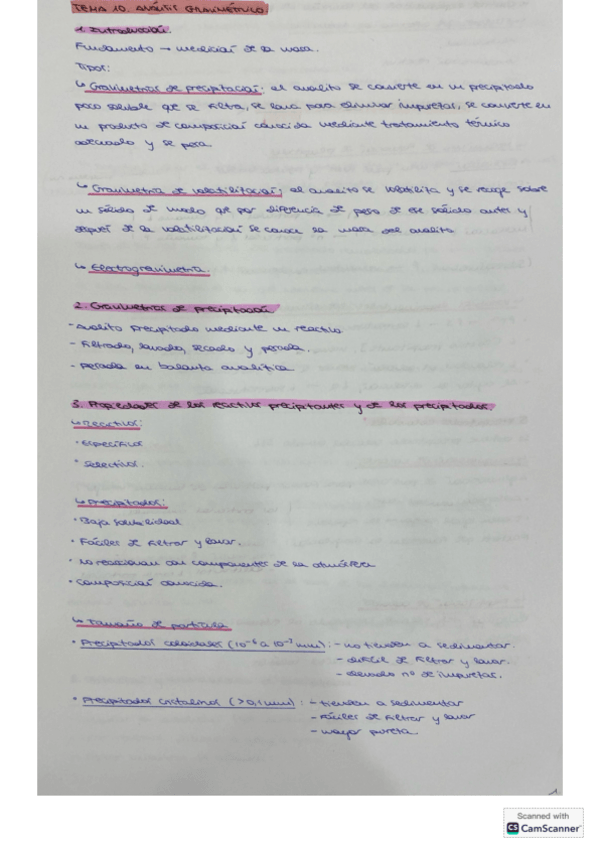 TEMA 10. ANÁLISIS GRAVIMÉTRICO
1. Introducción.
Fundamento → medición de la masa.
Tipos:
↳ Gravimetrías de precipitación: el analito se convierte en un precipitado
poco soluble que se filtra, se lava para eliminar impurezas, se convierte en
un producto de composición conocida mediante tratamiento térmico
adecuado y se pesa
↳ Gravimetría de volatilización; el analito se volatiliza y se recoge sobre
un sólido de modo que por diferencia de peso de ese sólido antes y
después de la volatilización se conoce la masa del analito
↳ Electrogravimetría.
2. Gravimetrías de precipitación
- Analito precipitado mediante un reactivo
- Filtrado, lavado, secado y pesada.
- pesada en balanza analítica
3. Propiedades de los reactivos precipitantes y de los precipitados.
↳ Reactivos:
• Específicos
• Selectivos.
↳ Precipitados:
• Baja solubilidad
• Fáciles de filtrar y lavar.
• No reaccionan con componentes de la atmósfera
• Composición conocida.
↳ Tamaño de partícula
• Precipitados coloidales (10⁻⁶ a 10⁻⁷ mm): - no tienden a sedimentar.
- difícil de filtrar y lavar.
- elevado nº de impurezas.
• Precipitados cristalinos (>0,1 mm): - tienden a sedimentar
- Fáciles de filtrar y lavar
- mayor pureza.
1
Scanned with
CS CamScanner